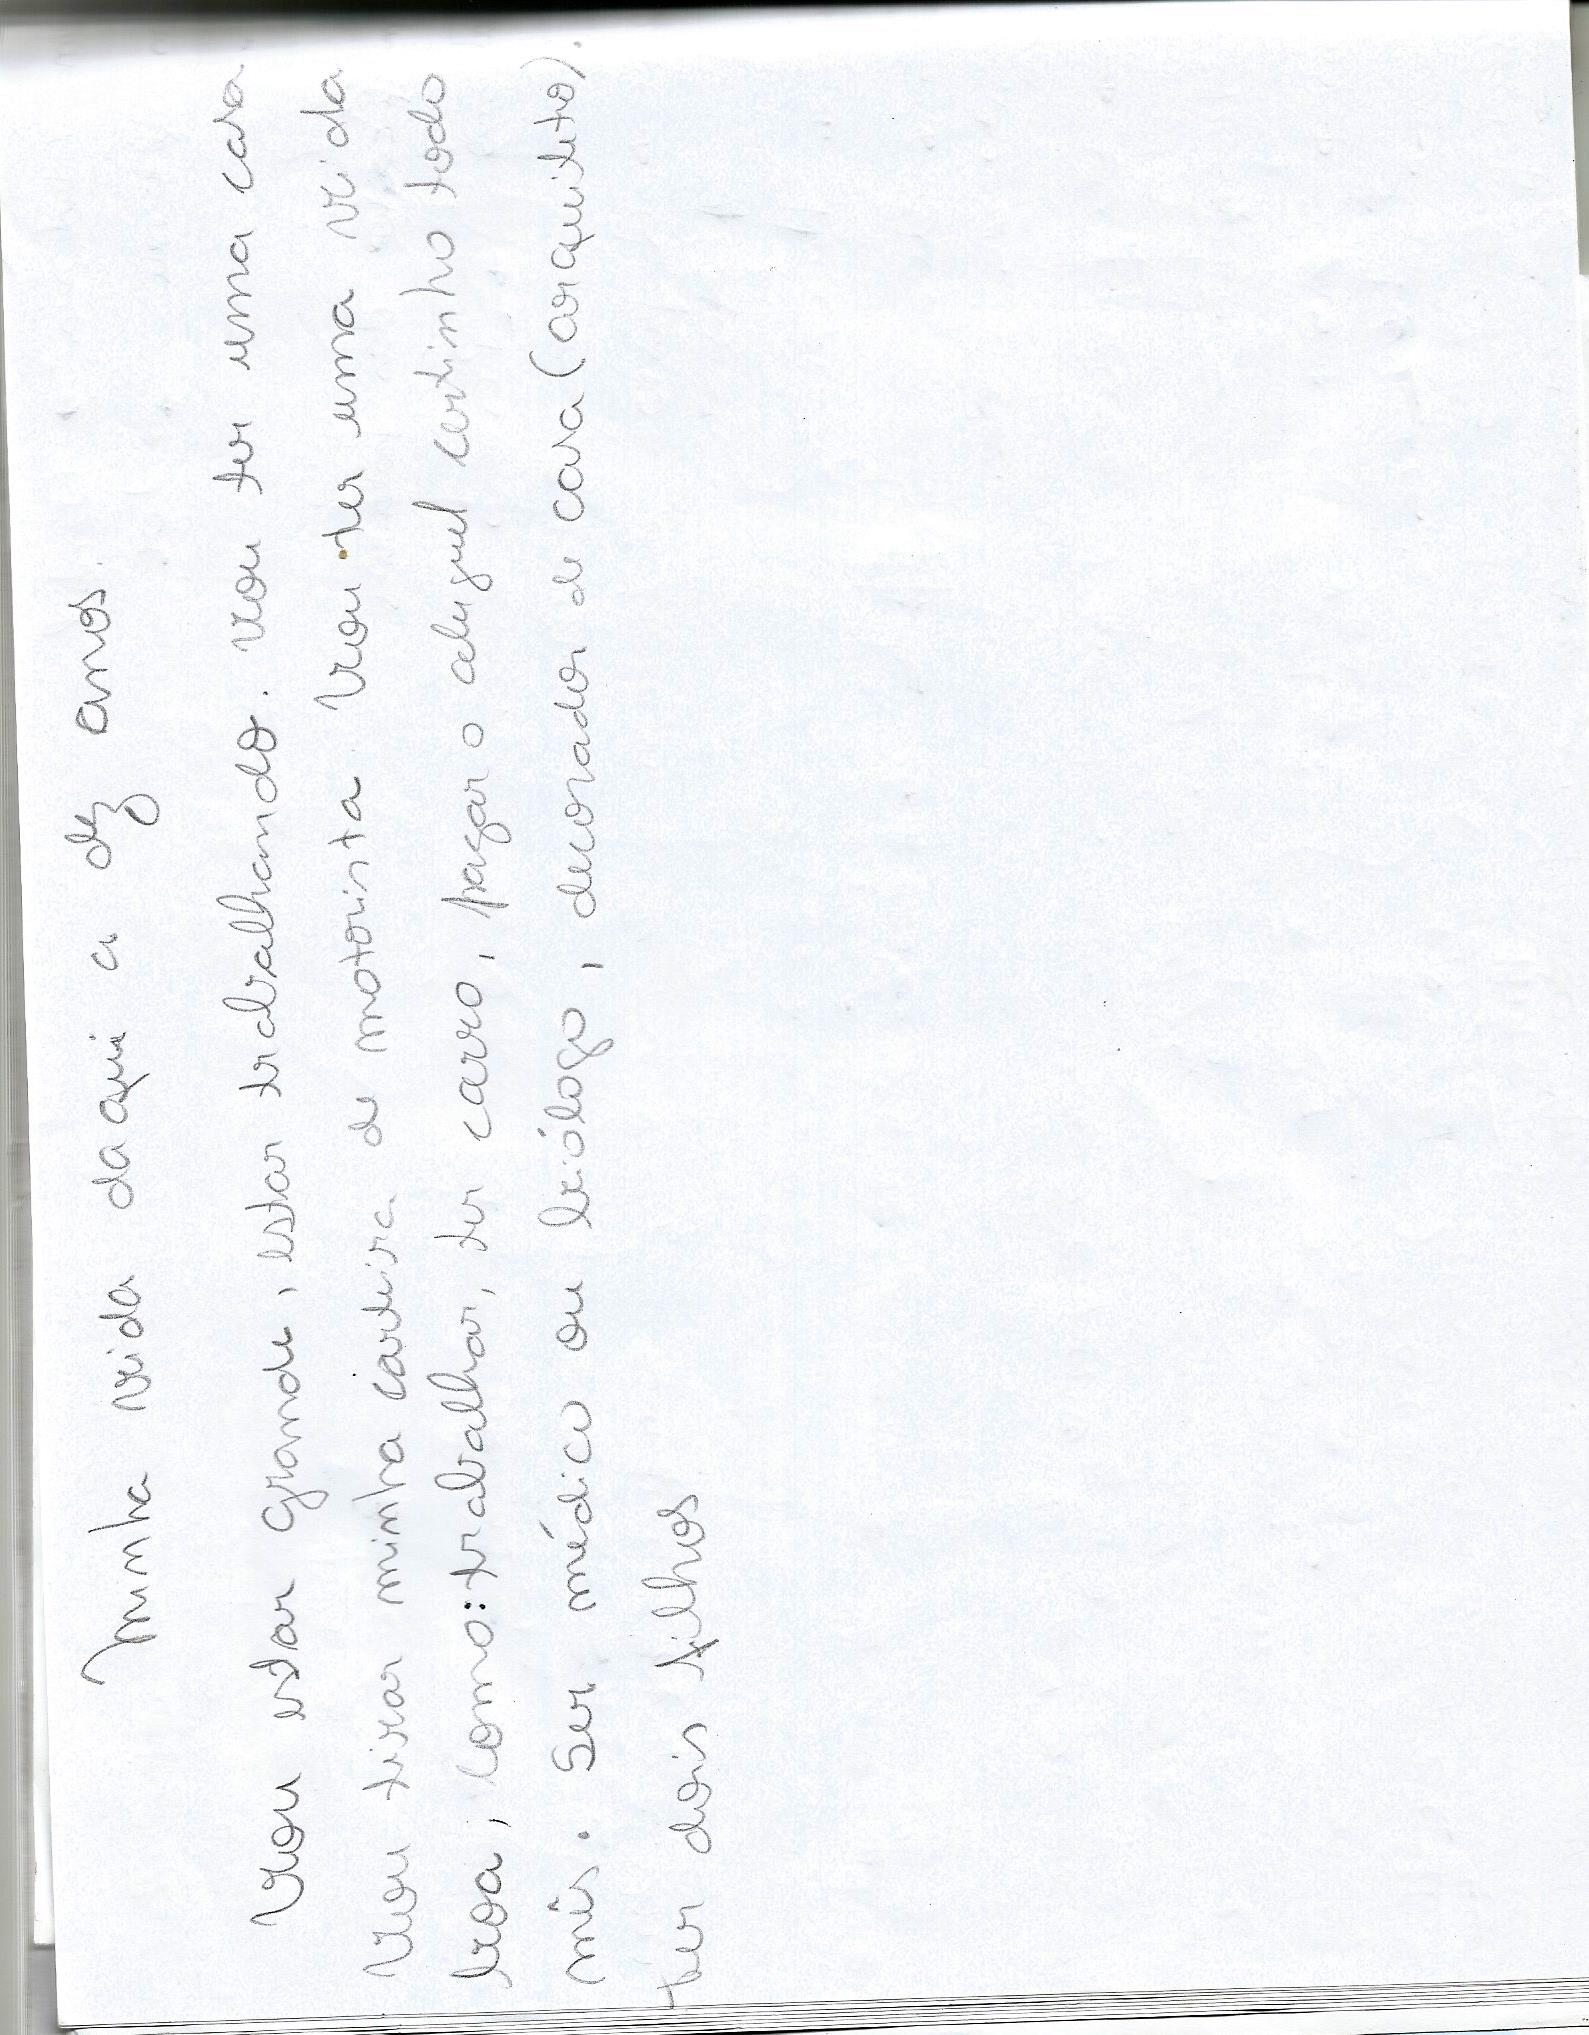 Minha vida daqui a dez anos.
Vou estar grande, estar trabalhando. Vou ter uma casa
Vou tirar minha carteira de motorista. Vou ter uma vida
boa, como: trabalhar, ter carro, pagar o aluguel certinho todo
mês. Ser médico ou biólogo, decorador de casa (arquiteto).
ter dois filhos